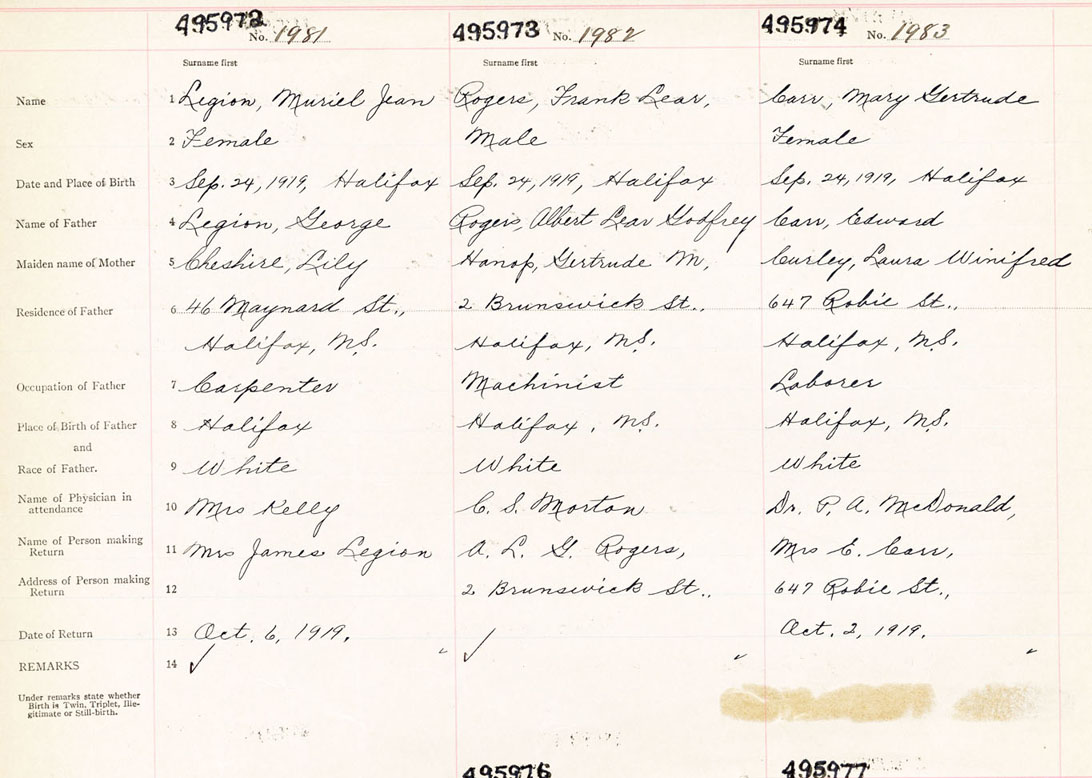 495972 495973 495974
No. 1981 No. 1982 No. 1983
Surname first Surname first Surname first
Name 1 Legion, Muriel Jean Rogers, Frank Lear, Carr, Mary Gertrude
Sex 2 Female Male Female
Date and Place of Birth 3 Sep. 24, 1919, Halifax Sep. 24, 1919, Halifax Sep. 24, 1919, Halifax
Name of Father 4 Legion, George Rogers, Albert Lear Godfrey Carr, Edward
Maiden name of Mother 5 Cheshire, Lily Gertrude M, Curley, Laura Winifred
Residence of Father 6 46 Maynard St., 2 Brunswick St.. 647 Robie St.,
Halifax, N.S. Halifax, N.S. Halifax, N.S.
Occupation of Father 7 Carpenter Machinist Laborer
Place of Birth of Father 8 Halifax Halifax, N.S. Halifax, N.S.
and
Race of Father. 9 White White White
Name of Physician in
attendance 10 Mrs Kelly C. S. Morton Dr. P. A. McDonald,
Name of Person making
Return 11 Mrs James Legion A. L. G. Rogers, Mrs E. Carr,
Address of Person making
Return 12 2 Brunswick St.. 647 Robie St.,
Date of Return 13 Oct. 6, 1919. Oct. 2, 1919.
REMARKS 14
Under remarks state whether
Birth is Twin, Triplet, Ille-
gitimate or Still-birth.
495976 495977